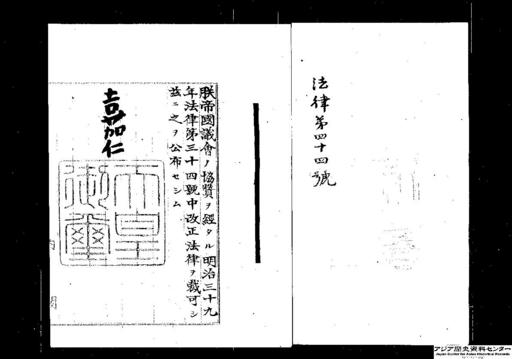 法律第四十四號
朕帝國議會ノ協賛ヲ經タル明治三十九
年法律第三十四號中改正法律ヲ裁可シ
茲ニ之ヲ公布セシム
嘉仁
天皇
御璽
アジア歴史資料センター
Japan Center for Asian Historical Records